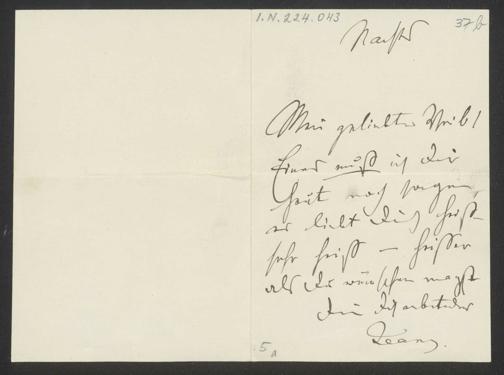 I.N. 224.043
37b
Nachts
Mein geliebtes Weib!
Eines muß ich Dir
heut noch sagen,
es liebt Dich heiß
sehr heiß – heißer
als Du wünschen magst
Dein
5
a